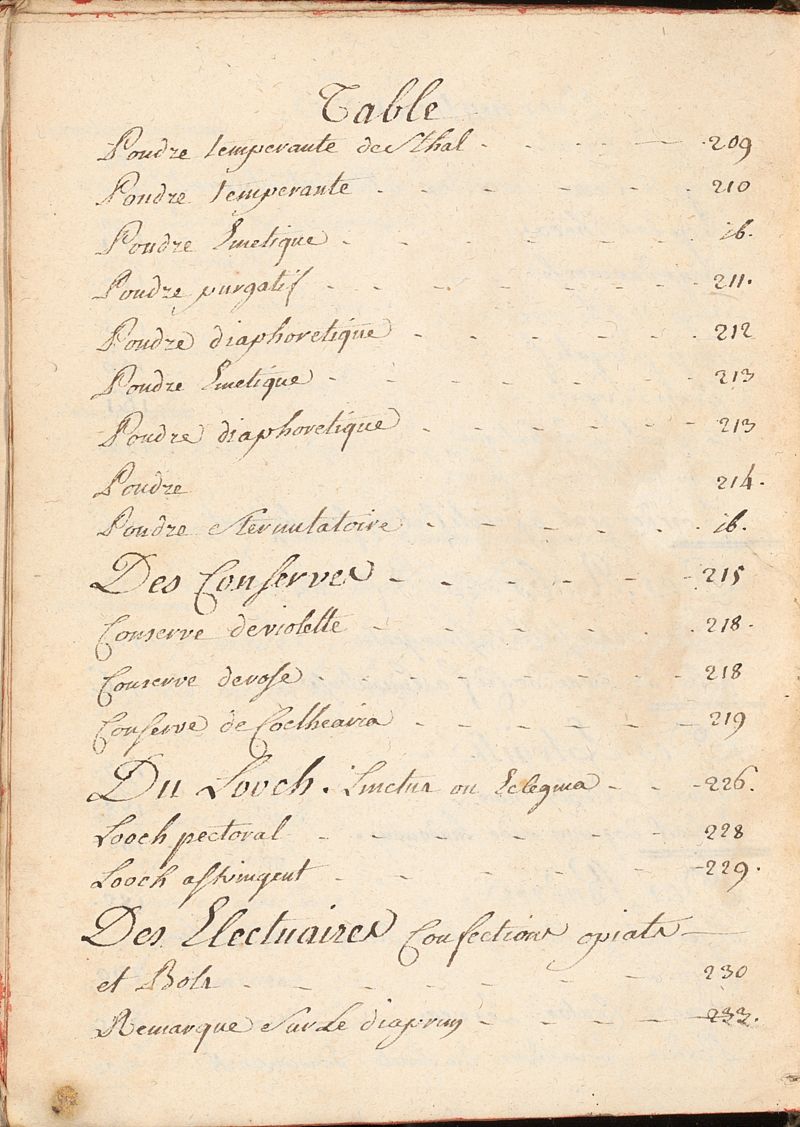 Table
Poudre temperante de Sthal - - - - - 209
Poudre temperante - - - - - - 210
Poudre Emetique - - - - - - ib.
Poudre purgatif - - - - - - 211.
Poudre diaphoretique - - - - - - 212
Poudre Emetique - - - - - - 213
Poudre diaphoretique - - - - - - 213
Poudre 214.
Poudre Sternutatoire - - - - - ib.
Des Conserves - - - - - - 215
Conserve deviolette - - - - - - 218.
Conserve derose - - - - - - 218
Conserve de Coclhearia - - - - - - 219
Du Looch. Linctus ou Eclegma - - - 226.
Looch pectoral - - - - - - 228
Looch astringent - - - - - - 229.
Des Electuaires Confections opiats —
et Bols - - - - - - 230
Remarque Sur Le diaprun - - - - - 233.